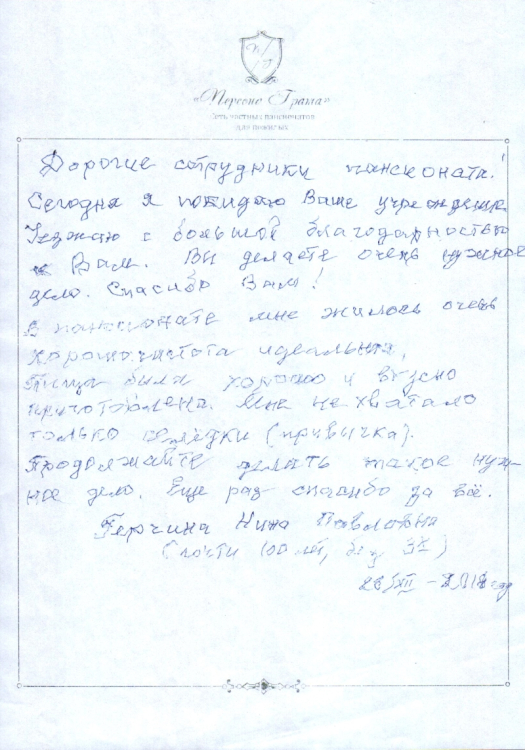 «Персона Грата»
Сеть частных пансионатов
для пожилых
Дорогие сотрудники пансионата!
Сегодня я покидаю Ваше учреждение
Уезжаю с большой благодарностью
к Вам. Вы делаете очень нужное
дело. Спасибо Вам!
В пансионате мне жилось очень
хорошо: чистота идеальная,
Пища была хорошо и вкусно
приготовлена. Мне не хватало
только селёдки (привычка).
Продолжайте делать такое нуж-
ное дело. Еще раз спасибо за всё.
Герчина Нина Павловна
(почти 100 лет, без